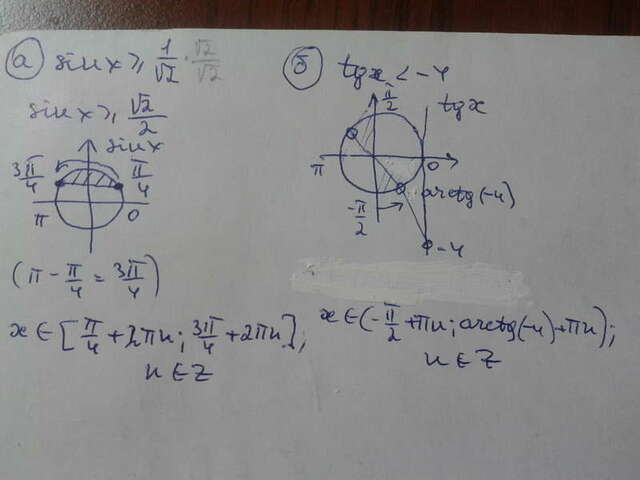 а) sin x ≥ 1/√2 · √2/√2
sin x ≥ √2/2
sin x
3π/4 π/4
π 0
(π - π/4 = 3π/4)
x ∈ [π/4 + 2πn; 3π/4 + 2πn];
n ∈ Z
б) tg x < -4
π/2 tg x
π 0
arctg(-4)
-π/2
-4
x ∈ (-π/2 + πn; arctg(-4) + πn);
n ∈ Z